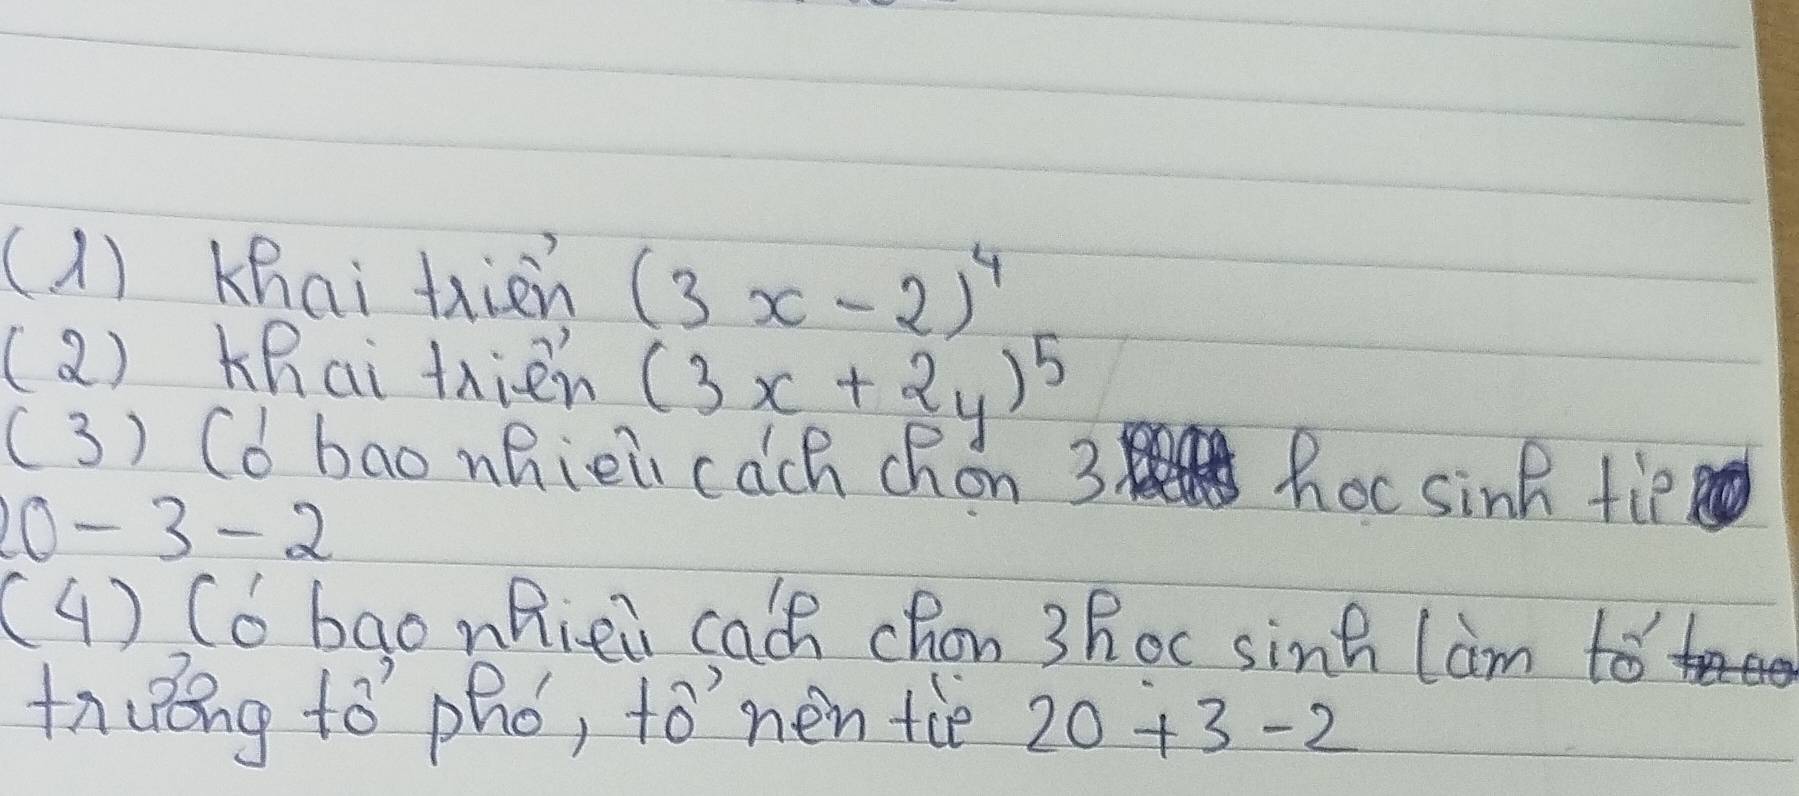 (1) Khai triển (3x-2)⁴
(2) Khai triển (3x+2y)⁵
(3) Có bao nhiêu cách chọn 3 học sinh từ
20-3-2
(4) Có bao nhiêu cách chọn 3 học sinh làm tổ
trưởng tổ phó, tổ nên từ 20+3-2